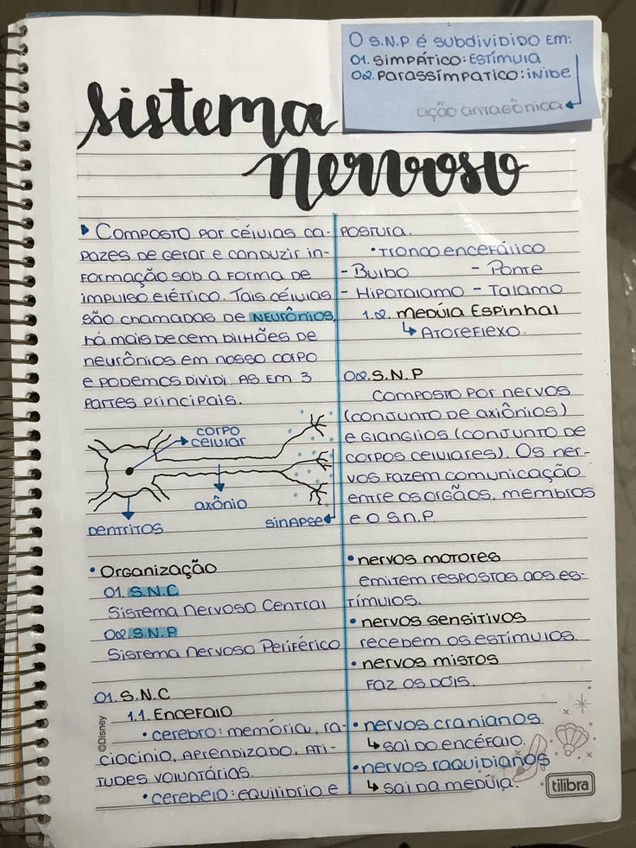 O S.N.P é subdividido em:
01. simpático: estimula
02. parassimpatico: inibe
ação antagônica
sistema
nervoso
Composto por células ca-
pazes de gerar e conduzir in-
formação sob a forma de
impulso elétrico. Tais células
são chamadas de neurônios,
há mais de cem bilhões de
neurônios em nosso corpo
e podemos dividi as em 3
partes principais.
corpo
celular
axônio
Dentritos
sinapse
• Organização
01. S.N.C
Sistema Nervoso Central
02. S.N.P
Sistema Nervoso Periférico
01. S.N.C
1.1. Encefalo
• cerebro: memória, ra-
ciocinio, aprendizado, ati-
tudes voluntárias.
• cerebelo: equilíbrio e
postura.
• tronco encefálico
- Bulbo - Ponte
- Hipotalamo - Talamo
1.2. medúla Espinhal
Atoreflexo.
02. S.N.P
Composto por nervos
(conjunto de axiônios)
e glanglios (conjunto de
corpos celulares). Os ner-
vos fazem comunicação
entre os orgãos, membros
e o S.N.P
• nervos motores
emitem respostas aos es-
tímulos.
• nervos sensitivos
recebem os estímulos
• nervos mistos
Faz os dois.
• nervos cranianos
sai do encéfalo
• nervos raquidianos
sai da medúla.
©Disney
tilibra